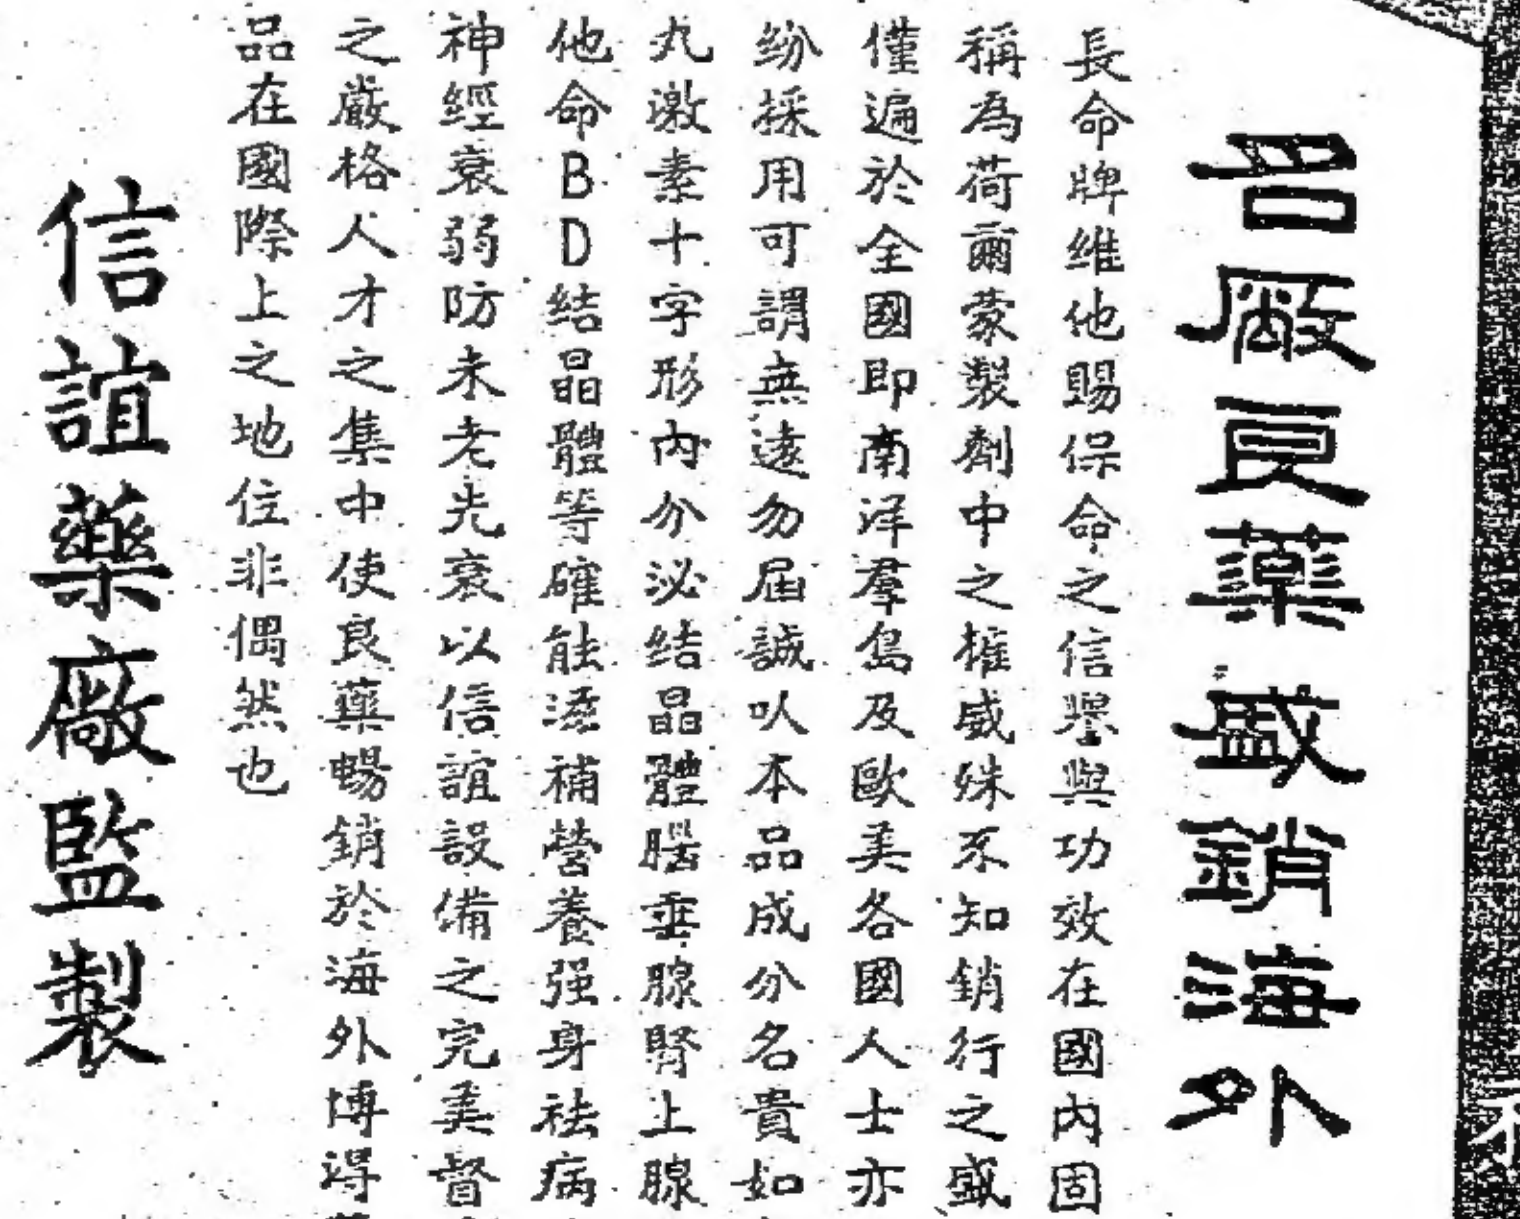 名廠良藥盛銷海外
長命牌維他賜保命之信譽與功效在國內固
稱為荷爾蒙製劑中之權威殊不知銷行之盛
僅遍於全國即南洋羣島及歐美各國人士亦
紛採用可謂無遠勿屆誠以本品成分名貴如
丸激素十字形內分泌结晶體腦垂腺腎上腺
他命BD结晶體等確能滋補營養强身祛病
神經衰弱防未老先衰以信誼設備之完美督
之嚴格人才之集中使良藥暢銷於海外博得
品在國際上之地位非偶然也
信誼藥廠監製